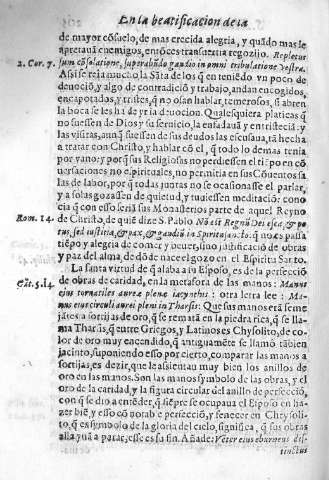 En la beatificacion de la
de mayor cõsuelo, de mas crecida alegria, y quãdo mas le
apretauã enemigos, entõces tenia cierta regozijo. Repletus
2. Cor. 7. sum cõsolatione, superabũdo gaudio in omni tribulatione vestra.
Assi se reia mucho la Sãta de los q en teniẽdo vn poco de
deuociõ, y algo de contradiciõ y trabajo, andan encogidos,
encapotados, y tristes, q no osan hablar, temerosos, si abren
la boca se les ha de yr la deuocion. Qualesquiera platicas q
no fuessen de Dios y su seruicio, la enfadauã y entristeciã: y
las visitas, aunq fuessen de sus deudos las escusaua, tã hecha
a tratar con Christo, y hablar cõ el, q todo lo demas tenia
por vano: y porq sus Religiosas no perdiessen el tiẽpo en cõ
uersaciones no espirituales, no permitia en sus Cõuentos sa
las de labor, porq todas juntas no se ocasionasse el parlar,
y a solas gozassen de quietud, y tuuiessen meditaciõ: cono-
cia q con esso seriã sus Monasterios parte de aquel Reyno
Rom. 14. de Christo, de quiẽ dize S. Pablo Nõ est Regnũ Dei esca, & po-
tus, sed iustitia, & pax, & gaudiũ in Spiritu sancto: q no es passa
tiẽpo y alegria de comer y beuer, sino justificaciõ de obras
y paz del alma, de dõde nace el gozo en el Espiritu Santo.
La santa virtud de q alaba a su Esposo, es de la perfeciõ
de obras de caridad, en la metafora de las manos: Manus
Cãt. 5. 14. eius tornatiles aureæ plenæ iacynthis: otra letra lee: Ma-
nus eius circuli aurei pleni in Tharsis: Que sus manos erã seme
jãtes a sortijas de oro, q se remata en la piedra rica, q se lla-
ma Tharsis, q entre Griegos, y Latinos es Chysolito, de co-
lor de oro muy encendido, q antiguamẽte se llamò tãbien
jacinto, suponiendo esso por cierto, comparar las manos a
sortijas, es dezir, que le assientau muy bien los anillos de
oro en las manos. Son las manos symbolo de las obras, y el
oro de la caridad, y la figura circular del anillo de perfeciõ,
con q se dio a entẽder, q siẽpre se ocupaua el Esposo en ha-
zer biẽ, y esso cõ notable perfecciõ, y fenecer en Chrysoli-
to, q es symbolo de la gloria del cielo, significa, q sus obras
alla yuã a parar, esse es su fin. Añade: Venter eius eburneus dis-
tinctus